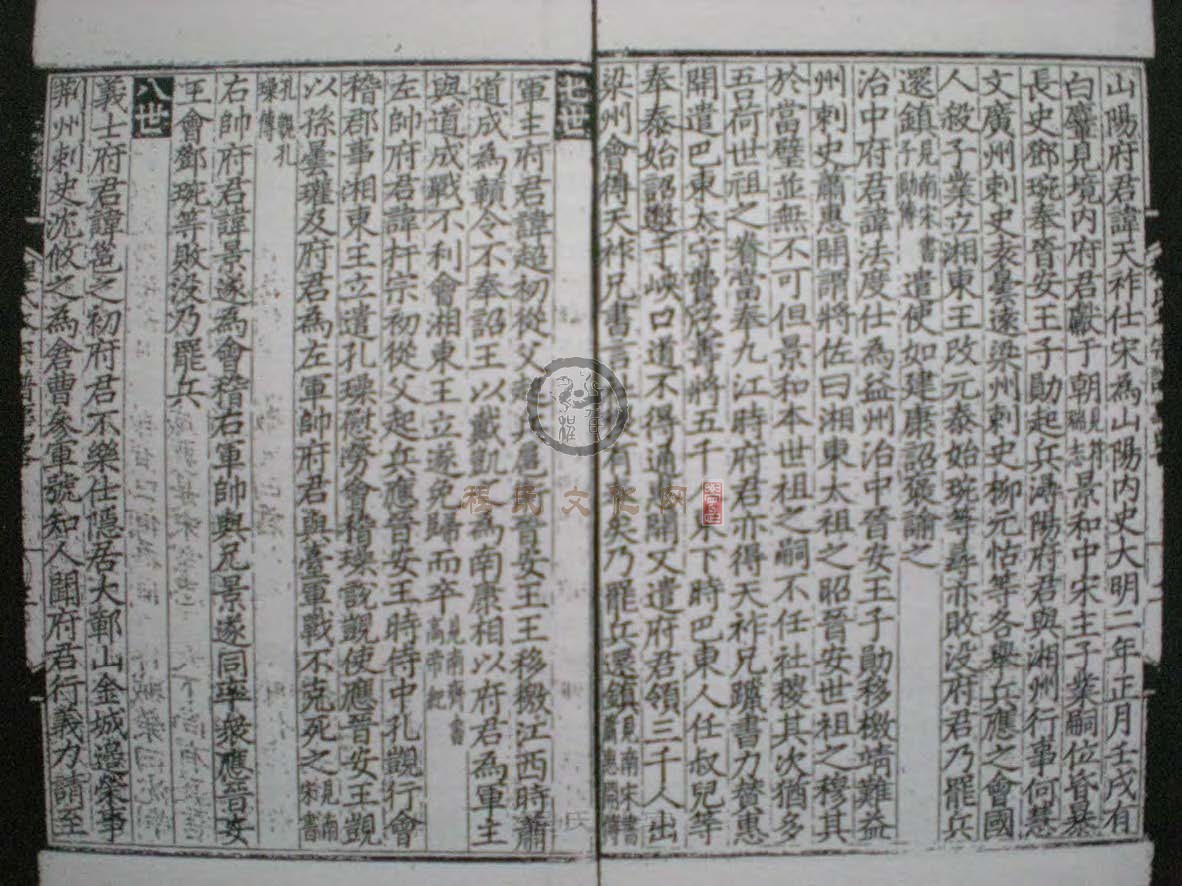 山陽府君諱天祚仕宋為山陽内史大明二年正月壬戌有
白麞見境内府君獻于朝見符瑞志景和中宋主子業嗣位昏暴
長史鄧琬奉晉安王子勛起兵潯陽府君與湘州行事何慧
文廣州刺史袁曇遠梁州刺史柳元怙等各舉兵應之會國
人殺子業立湘東王改元泰始琬等尋亦敗没府君乃罷兵
還鎮見南宋書子勛傳遣使如建康詔褒諭之
治中府君諱法度仕為益州治中晉安王子勛移檄靖難益
州刺史蕭惠開謂將佐曰湘東太祖之昭晉安世祖之穆其
於當璧並無不可但景和本世祖之嗣不任社稷其次猶多
吾荷世祖之眷當奉九江時府君亦得天祚兄牘書力贊惠
開遣巴東太守費欣壽將五千人東下時巴東人任叔兒等
奉泰始詔邀于峽口道不得通惠開又遣府君領三千人出
梁州會得天祚兄書言有矣乃罷兵還鎮見南宋書蕭惠開傳
七世
軍主府君諱超初從父晉安王王移檄江西時蕭
道成為贛令不奉詔王以戴凱之為南康相以府君為軍主
與道成戰不利會湘東王立遂免歸而卒見南齊書高帝紀
左帥府君諱扞宗初從父起兵應晉安王時侍中孔觀行會
稽郡事湘東王立遣孔璪慰勞會稽璪說觀使應晉安王觀
以孫曇瓘及府君為左軍帥府君與臺軍戰不克死之見南宋書
孔觀孔璪傳
右帥府君諱景遂為會稽右軍帥與兄景遂同率衆應晉安
王會鄧琬等敗没乃罷兵
八世
義士府君諱邕之初府君不樂仕隱居大鄣山金城邊榮事
荆州刺史沈攸之為倉曹參軍號知人聞府君行義力請至